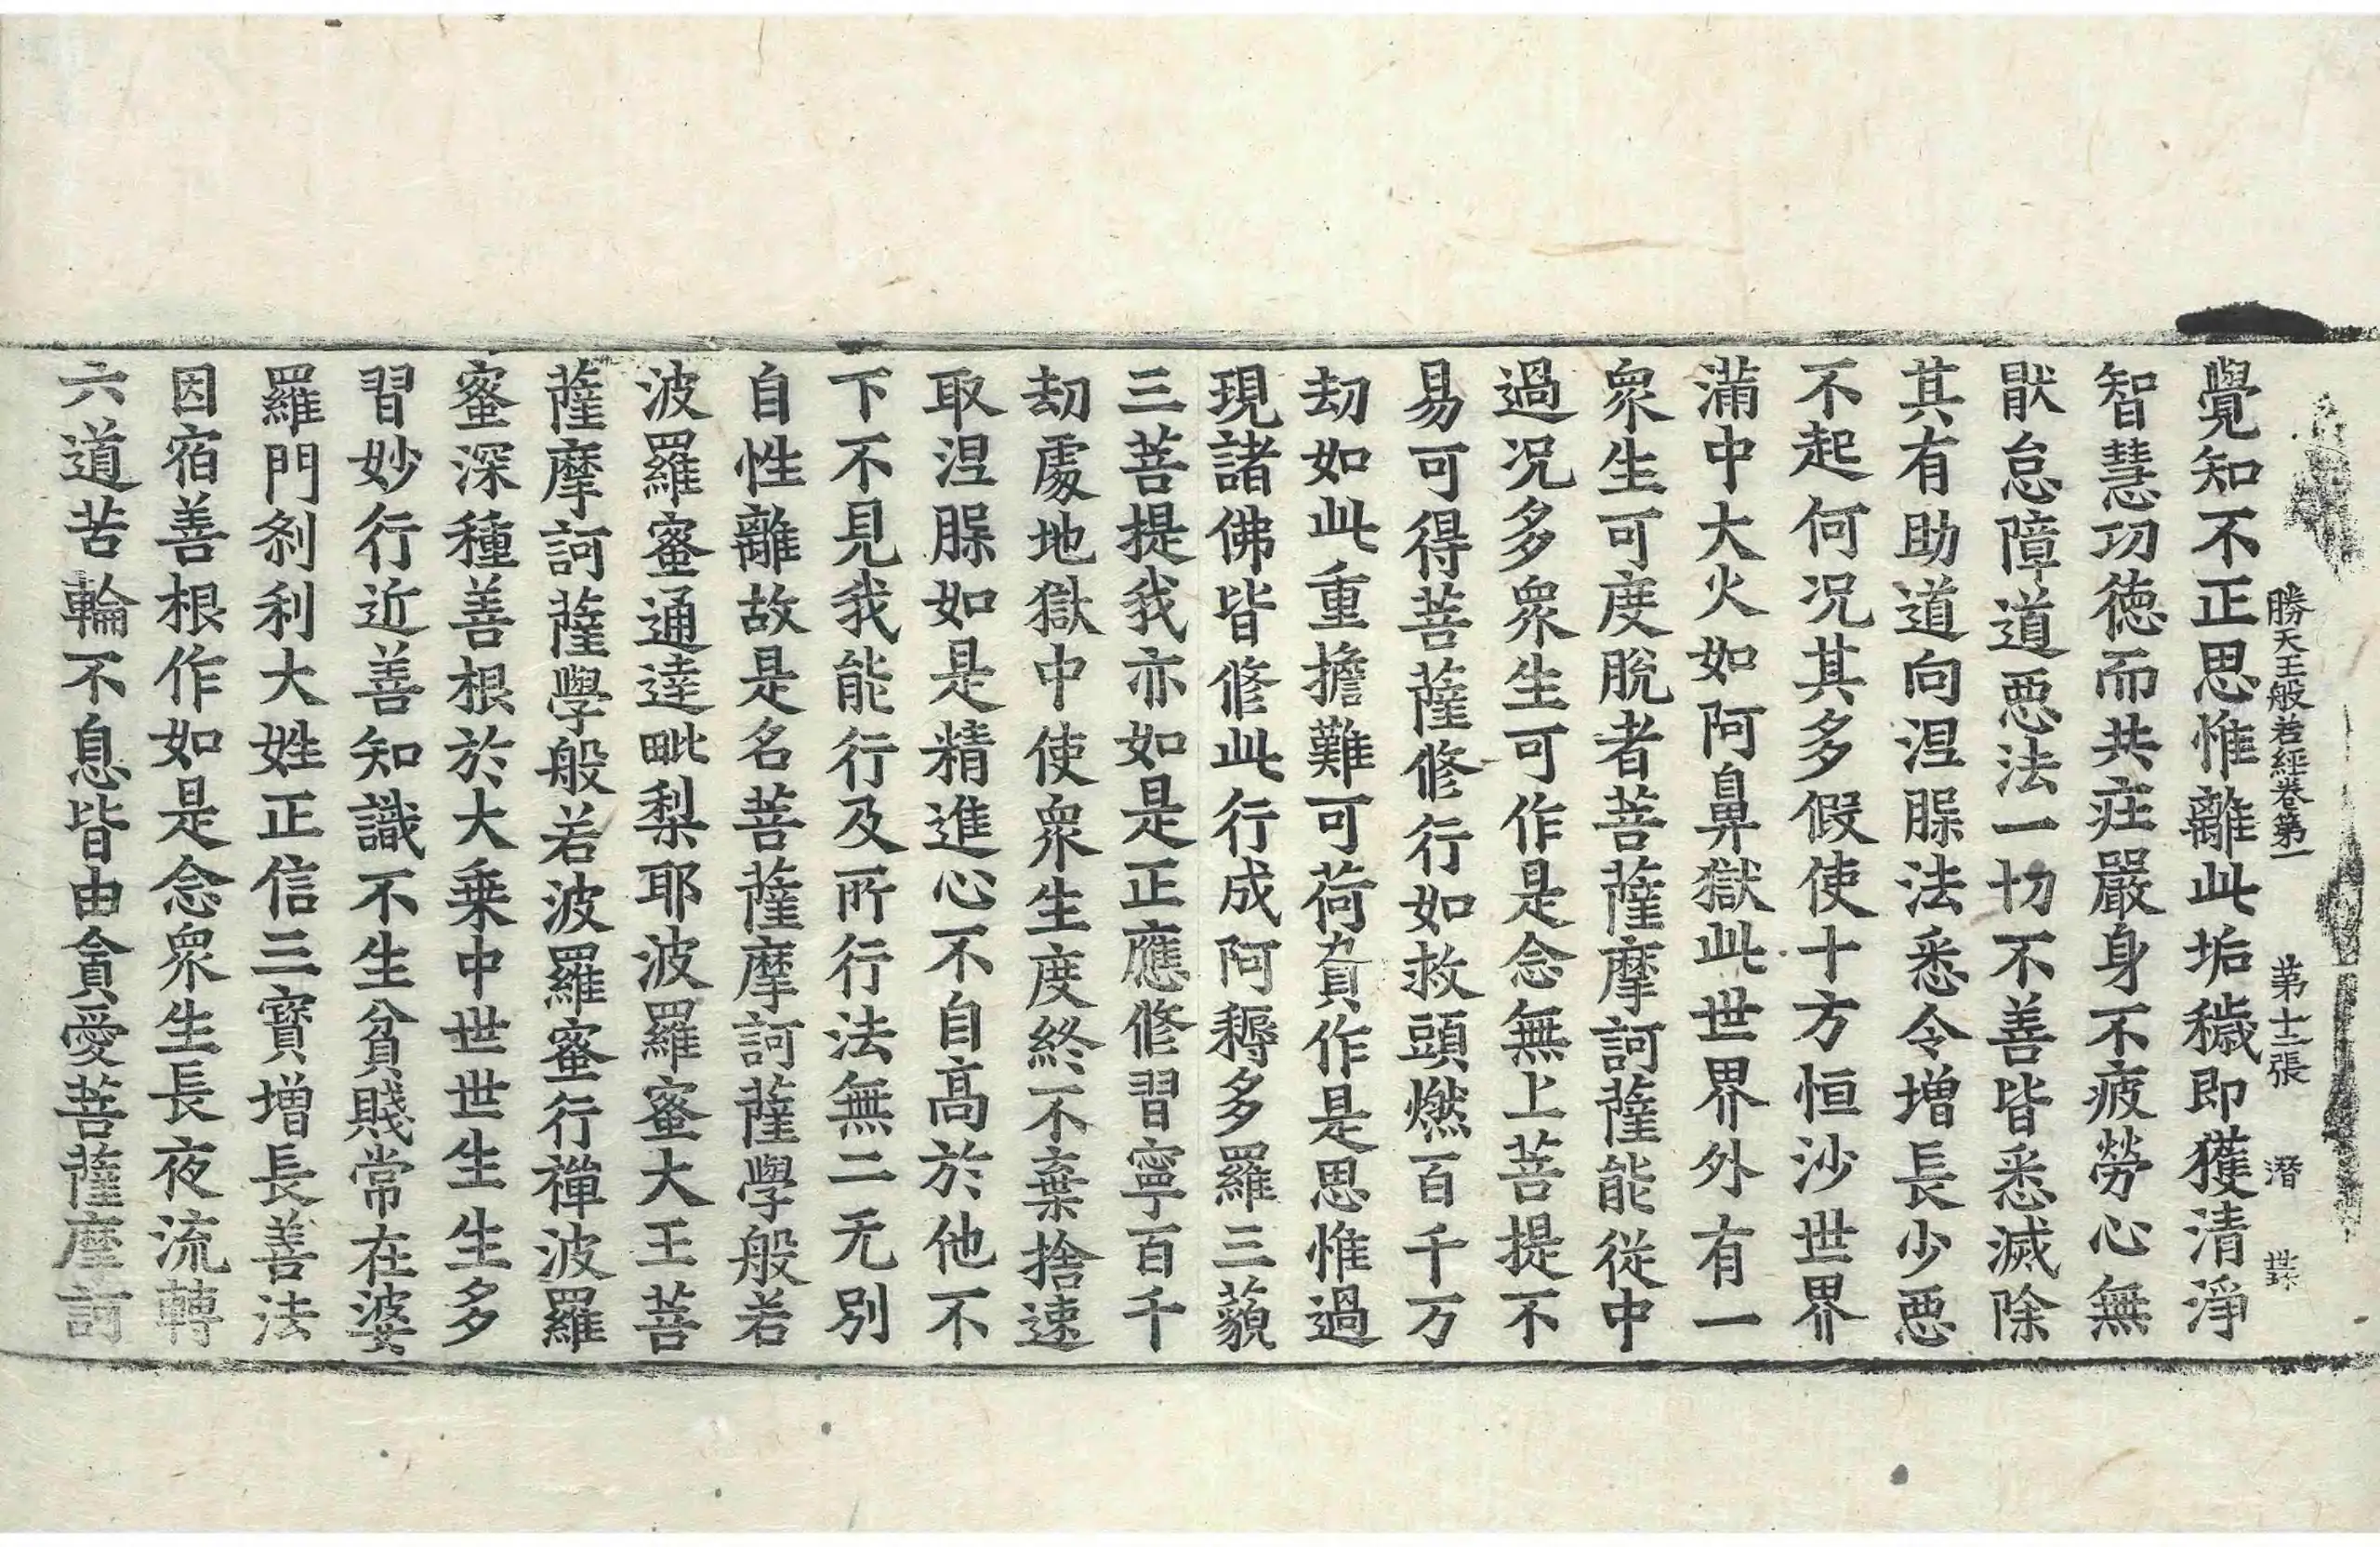 勝天王般若經卷第一 第十二張 潛
覺知不正思惟離此垢穢即獲清淨
智慧功德而共莊嚴身不疲勞心無
猒怠障道惡法一切不善皆悉滅除
其有助道向涅槃法悉令增長少惡
不起何况其多假使十方恒沙世界
滿中大火如阿鼻獄此世界外有一
衆生可度脫者菩薩摩訶薩能從中
過况多衆生可作是念無上菩提不
易可得菩薩修行如救頭燃百千万
劫如此重擔難可荷負作是思惟過
現諸佛皆修此行成阿耨多羅三藐
三菩提我亦如是正應修習寧百千
劫處地獄中使衆生度終不棄捨速
取涅槃如是精進心不自高於他不
下不見我能行及所行法無二无別
自性離故是名菩薩摩訶薩學般若
波羅蜜通達毗梨耶波羅蜜大王菩
薩摩訶薩學般若波羅蜜行禪波羅
蜜深種善根於大乘中世世生生多
習妙行近善知識不生貧賤常在婆
羅門剎利大姓正信三寶增長善法
因宿善根作如是念衆生長夜流轉
六道苦輪不息皆由貪愛菩薩摩訶